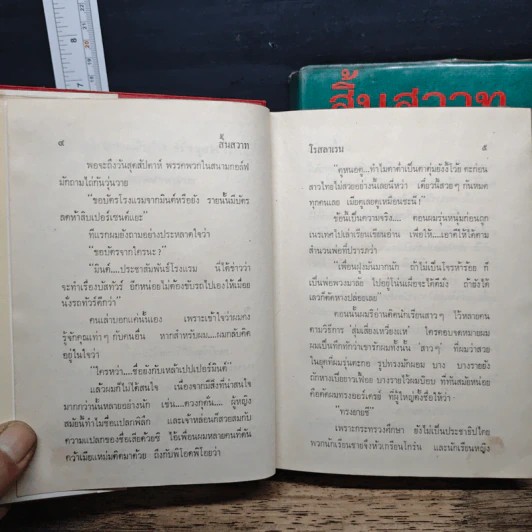 สิ้นสวาท
๔ สิ้นสวาท
พอจะถึงวันสุดสัปดาห์ พรรคพวกในสนามกอล์ฟ
มักถามไถ่กันวุ่นวาย
"ขอบัตรโรงแรมจากมินต์หรือยัง รายนั้นมีบัตร
ลดห้าสิบเปอร์เซนต์แยะ"
ทีแรกผมยังถามอย่างประหลาดใจว่า
"ขอบัตรจากใครนะ?"
"มินต์....ประชาสัมพันธ์โรงแรม นี่ได้ข่าวว่า
จะทำเรื่องบัสทัวร์ อีกหน่อยไม่ต้องขับรถไปเองให้เมื่อย
นั่งรถทัวร์ดีกว่า"
คนเล่าบอกแค่นั้นเอง เพราะเข้าใจว่าผมคง
รู้จักคุณเท่าๆ กับคนอื่น หากสำหรับผม....ผมกลับคิด
อยู่ในใจว่า
"ใครหว่า....ชื่อยังกับเหล้าเปปเปอร์มินต์"
แล้วผมก็ไม่ได้สนใจ เนื่องจากมีสิ่งที่น่าสนใจ
มากกว่านั้นหลายอย่างนัก เช่น....ดวงกุดั่น.... ผู้หญิง
สมัยนี้ทำไมชื่อแปลกพิลึก และเจ้าหล่อนก็สวยสมกับ
ความแปลกของชื่อเสียด้วยซี ไอ้เพื่อนผมหลายคนที่ดัน
คว้าเมียแหม่มติดมาด้วย ถึงกับพิโอดพิโอยว่า
โรสลาเรน ๕
"ดูหนอดู....ทำไมตาดำเป็นตาตุ่มยังงี้โว้ย คะก่อน
สาวไทยไม่สวยอย่างนี้เลยนี่หว่า เดี๋ยวนี้สวยๆ กันหมด
ทุกคนเลย เมื่อดูเลยดูเหมือนชะนี!"
ข้อนี้เป็นความจริง.... ตอนผมรุ่นหนุ่มก่อนถูก
เนรเทศไปเล่าเรียนเขียนอ่าน เพื่อให้....เอาดีให้ได้ตาม
สำนวนพ่อที่ปรารภว่า
"เพื่อนฝูงมันมากนัก ถ้าไม่เป็นโจรห้าร้อย ก็
เป็นพ่อพวงมาลัย ไปอยู่โน่นเผื่อจะได้ดีมั่ง ถ้าสั่งได้
เลวก็ตัดหางปล่อยเลย"
ตอนนั้นผมริอ่านติดนักเรียนสาวๆ ไว้หลายคน
ตามวิธีการ
ผมเป็นที่ทักทักว่าเขารักผมทั้งนั้น "สาวๆ" ที่ผมว่าสวย
ในยุคที่ผมรุ่นตะกอ รูปทรงมักผอม บาง บางรายยัง
ถักหางเปียยาวเฟื้อย บางรายไว้ผมบ๊อบ ที่ทันสมัยหน่อย
คือตัดผมทรงฮอร์เคร์ช ที่ผู้ใหญ่ตั้งชื่อให้ว่า
"ทรงยาซี"
เพราะกระทรวงศึกษา ยังไม่เป็นประชาธิปไตย
พวกนักเรียนชายจึงหัวเกรียนโกร๋น และนักเรียนหญิง